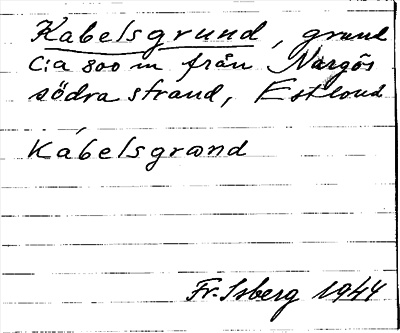 Kabelsgrund, grund
c:a 800 m från Nargös
södra strand, Estland
Kábelsgrønd
Fr. Isberg 1944